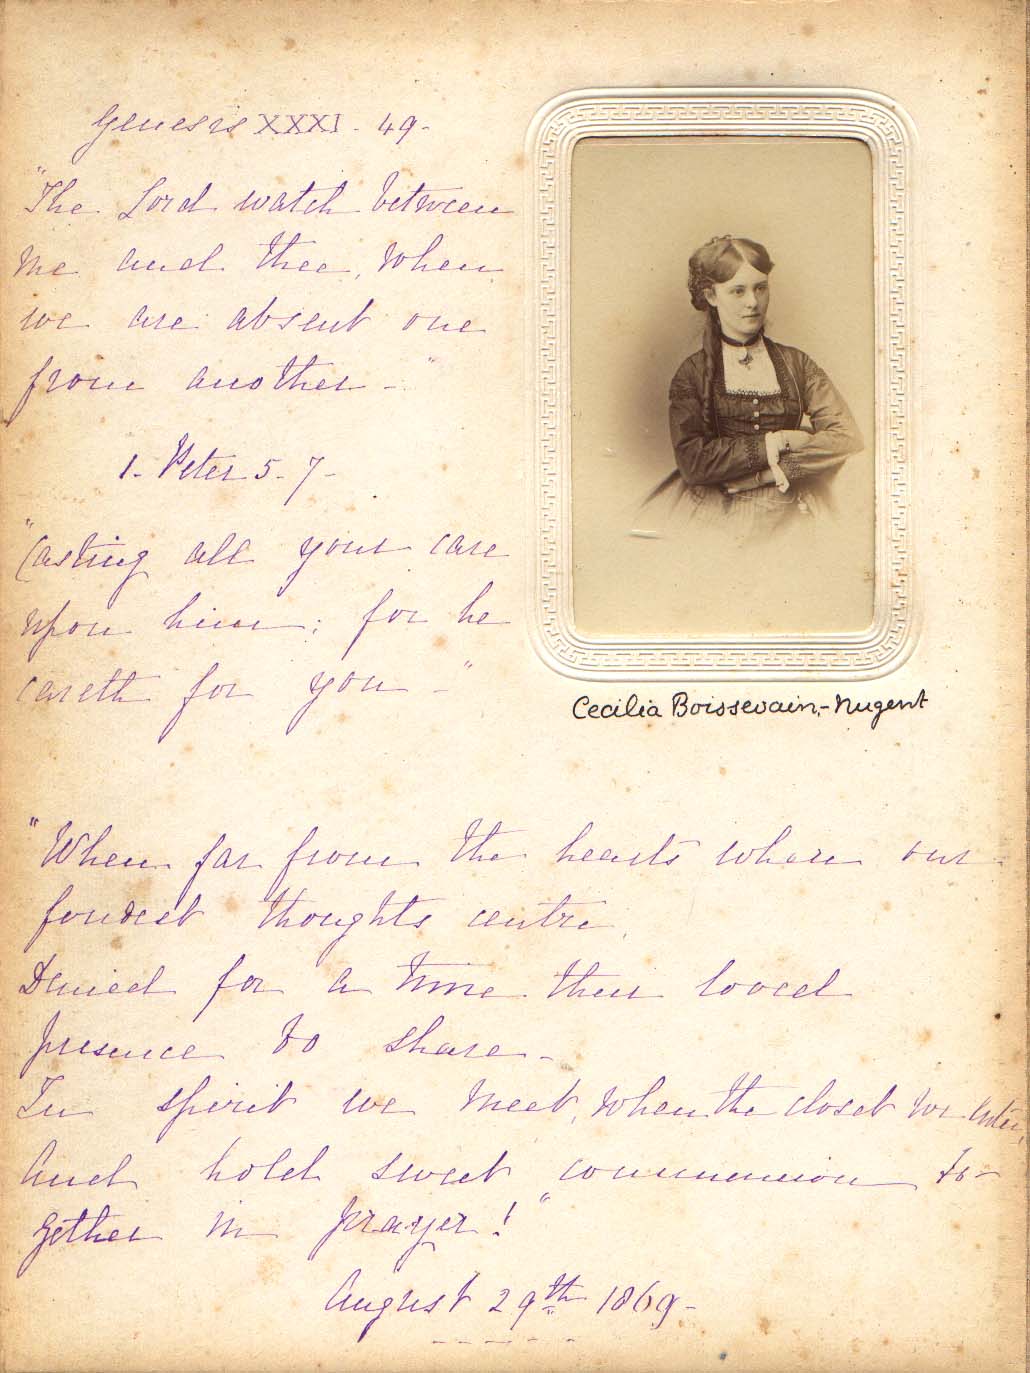 Genesis XXXI - 49 -
"The Lord watch between
me and thee, when
we are absent one
from another - "
1 - Peter 5 - 7 -
"Casting all your care
upon him; for he
careth for you - "
Cecilia Boissevain,-Nugent
"When far from the hearts where our
fondest thoughts centre,
Denied for a time their loved
presence to share -
In spirit we meet, when the closet we enter,
And hold sweet communion to-
gether in prayer!"
August 29th 1869 -